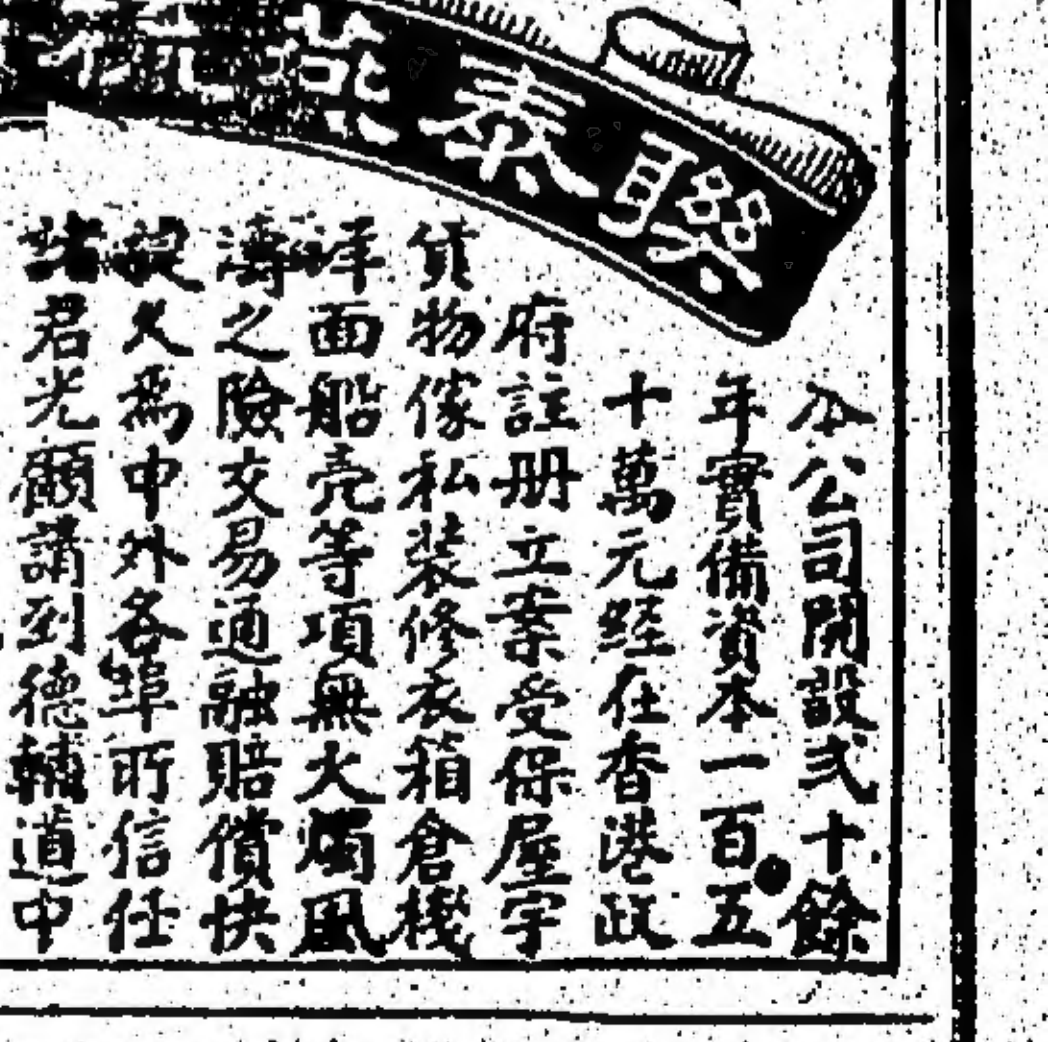 聯泰燕梳
本公司開設弍十餘
年實備資本一百五
十萬元經在香港政
府註册立案受保屋宇
貨物傢私裝修衣箱倉棧
洋面船壳等項無火燭風
濤之險交易通融賠償快
捷久爲中外各埠所信任
諸君光顧請到德輔道中